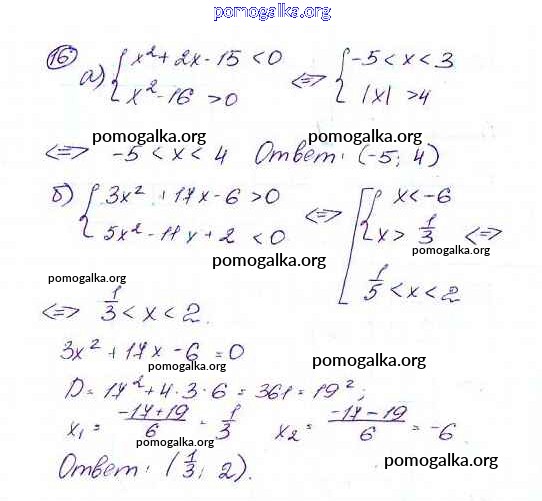 pomogalka.org
16) а) { x² + 2x - 15 < 0 <=> { -5 < x < 3
{ x² - 16 > 0 { |x| > 4
pomogalka.org pomogalka.org
<=> -5 < x < 4 Ответ: (-5; 4)
б) { 3x² + 17x - 6 > 0 <=> [ { x < -6
{ 5x² - 11x + 2 < 0 { x > 1/3 <=>
pomogalka.org
pomogalka.org
1/5 < x < 2
<=> 1/3 < x < 2.
pomogalka.org
3x² + 17x - 6 = 0
pomogalka.org pomogalka.org
D = 17² + 4·3·6 = 361 = 19²;
x₁ = (-17+19)/6 = 1/3 x₂ = (-17-19)/6 = -6
pomogalka.org
Ответ: (1/3; 2).
pomogalka.org